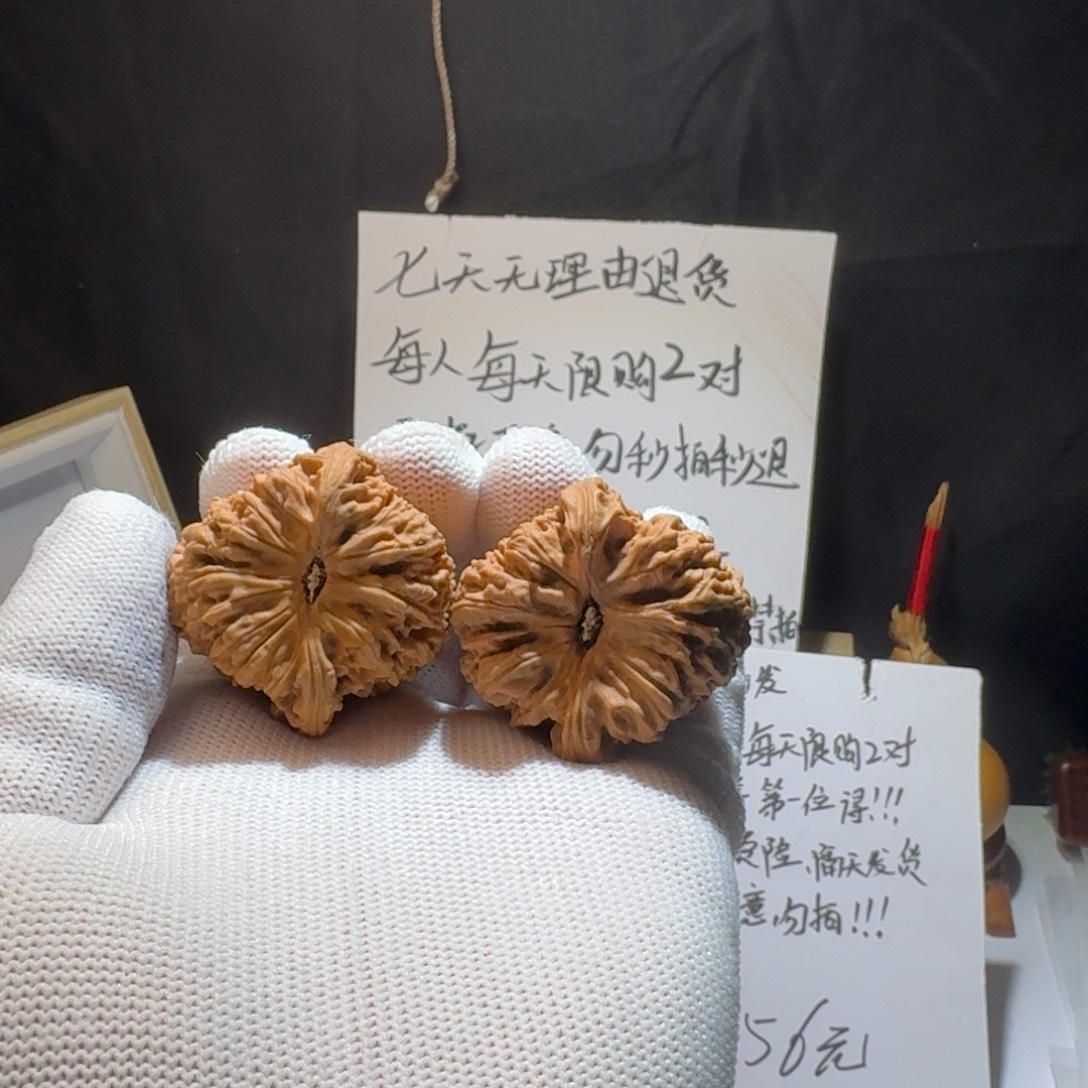 七天无理由退货
每人每天限购2对
勿秒拍秒退
拍
发
每天限购2对
第一位得!!!
险,隔天发货
意勿拍!!!
56元